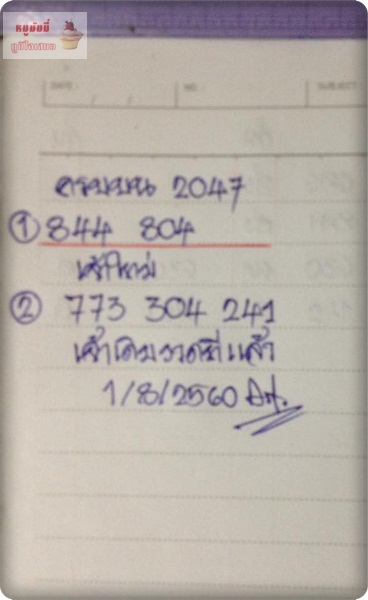 หมูอ้นนี่
ภูมิใจเสนอ
DATE
NO.
SUBJECT
ครบบน 2047
① 844 804
เข้าใหม่
② 773 304 241
เข้าเดิมงวดที่แล้ว
1/8/2560